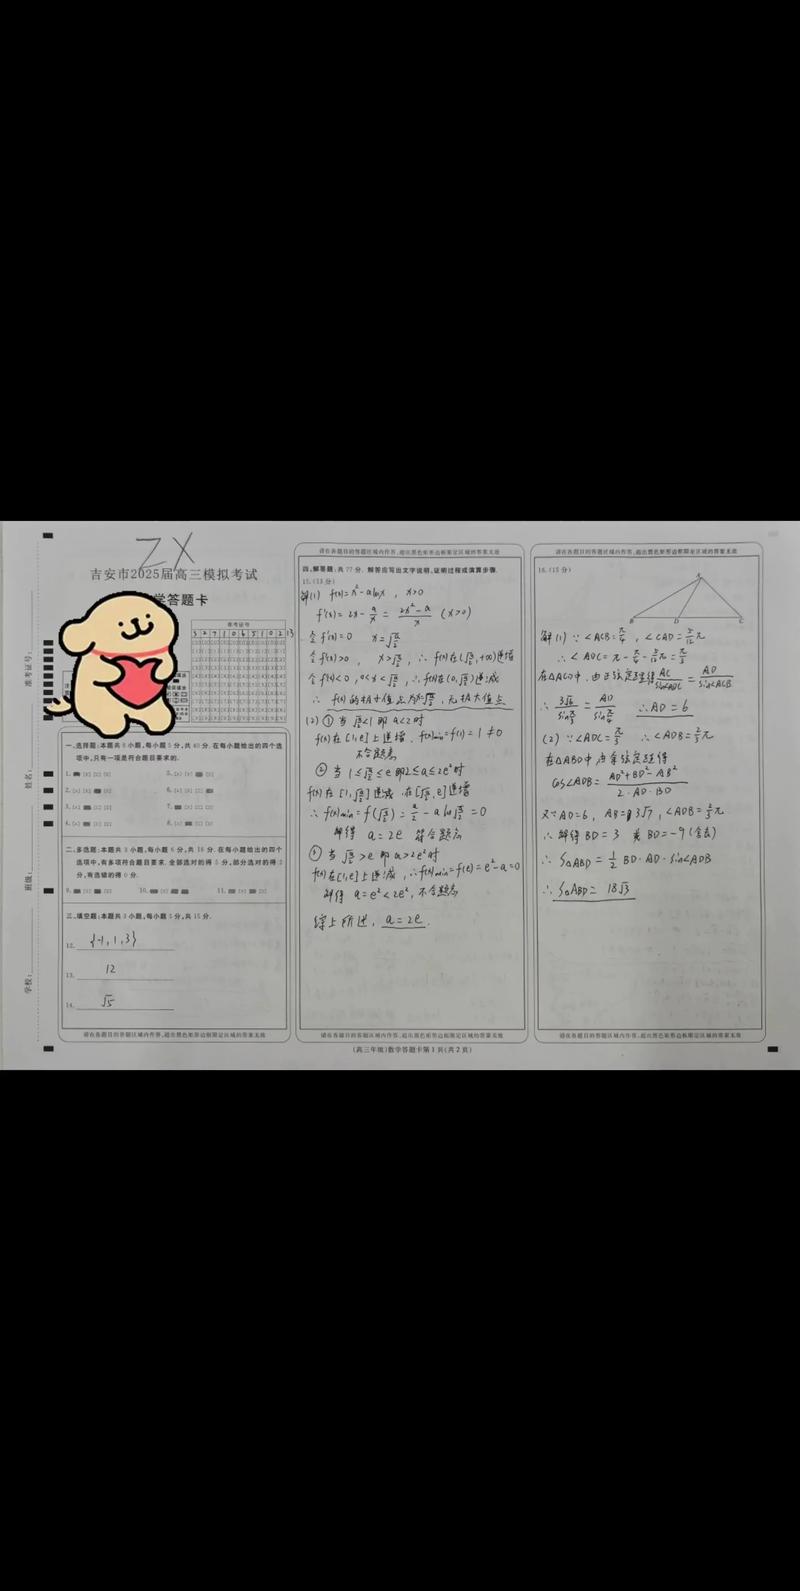 ZX
吉安市2025届高三模拟考试
学答题卡
准考证号
准考证号:
姓名:
班级:
学校:
一、选择题:本题共8小题,每小题5分,共40分.在每小题给出的四个选
项中,只有一项是符合题目要求的.
1.
5.
2.
6.
3.
7.
4.
8.
二、多选题:本题共3小题,每小题6分,共18分.在每小题给出的四个
选项中,有多项符合题目要求.全部选对的得
分,有选错的得0分.
9.
10.
11.
三、填空题:本题共3小题,每小题5分,共15分.
12. {-1,1,3}
13. 12
14. √5
请在各题目的答题区域内作答,超出黑色矩形边框限定区域的答案无效
请在各题目的答题区域内作答,超出黑色矩形边框限定区域的答案无效
四、解答题:共77分.解答应写出文字说明、证明过程或演算步骤.
15.(13分)
解(1) f(x)=x²-alnx , x>0
f'(x)=2x-a/x=(2x²-a)/x (x>0)
令f'(x)=0 x=√(a/2)
令f'(x)>0 , x>√(a/2) , ∴f(x)在(√(a/2),+∞)递增
令f'(x)<0 , 0<x<√(a/2) , ∴f(x)在(0,√(a/2))递减
∴ f(x)的极小值点为x=√(a/2) , 无极大值点
(2) ①当√(a/2)<1即a<2时
f(x)在[1,e]上递增 , f(x)min=f(1)=1≠0
不合题意
②当1≤√(a/2)≤e即2≤a≤2e²时
f(x)在[1,√(a/2)]递减 在[√(a/2),e]递增
∴f(x)min=f(√(a/2))=a/2-aln√(a/2)=0
解得 a=2e 符合题意
③当√(a/2)>e即a>2e²时
f(x)在[1,e]上递减 , ∴f(x)min=f(e)=e²-a=0
解得 a=e²<2e² , 不合题意
综上所述 , a=2e .
请在各题目的答题区域内作答,超出黑色矩形边框限定区域的答案无效
(高三年级)数学答题卡第1页(共2页)
请在各题目的答题区域内作答,超出黑色矩形边框限定区域的答案无效
16.(15分)
A
B
D
C
解(1) ∵∠ACB=π/4 , ∠CAD=5/12π
∴∠ADC=π-π/4-5/12π=π/3
在△ACD中 , 由正弦定理得AC/sin∠ADC=AD/sin∠ACB
∴ 3√6/sinπ/3=AD/sinπ/4 ∴AD=6
(2) ∵∠ADC=π/3 ∴∠ADB=2/3π
在△ABD中 由余弦定理得
cos∠ADB=(AD²+BD²-AB²)/(2·AD·BD)
又∵AD=6 , AB=3√7 , ∠ADB=2/3π
∴解得BD=3 或BD=-9(舍去)
∴S△ABD=1/2BD·AD·sin∠ADB
∴S△ABD=18√3
请在各题目的答题区域内作答,超出黑色矩形边框限定区域的答案无效